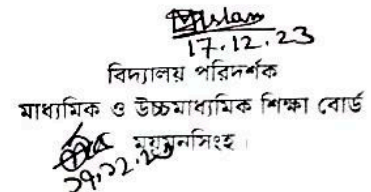 17.12.23
বিদ্যালয় পরিদর্শক
মাধ্যমিক ও উচ্চমাধ্যমিক শিক্ষা বোর্ড
ময়মনসিংহ।